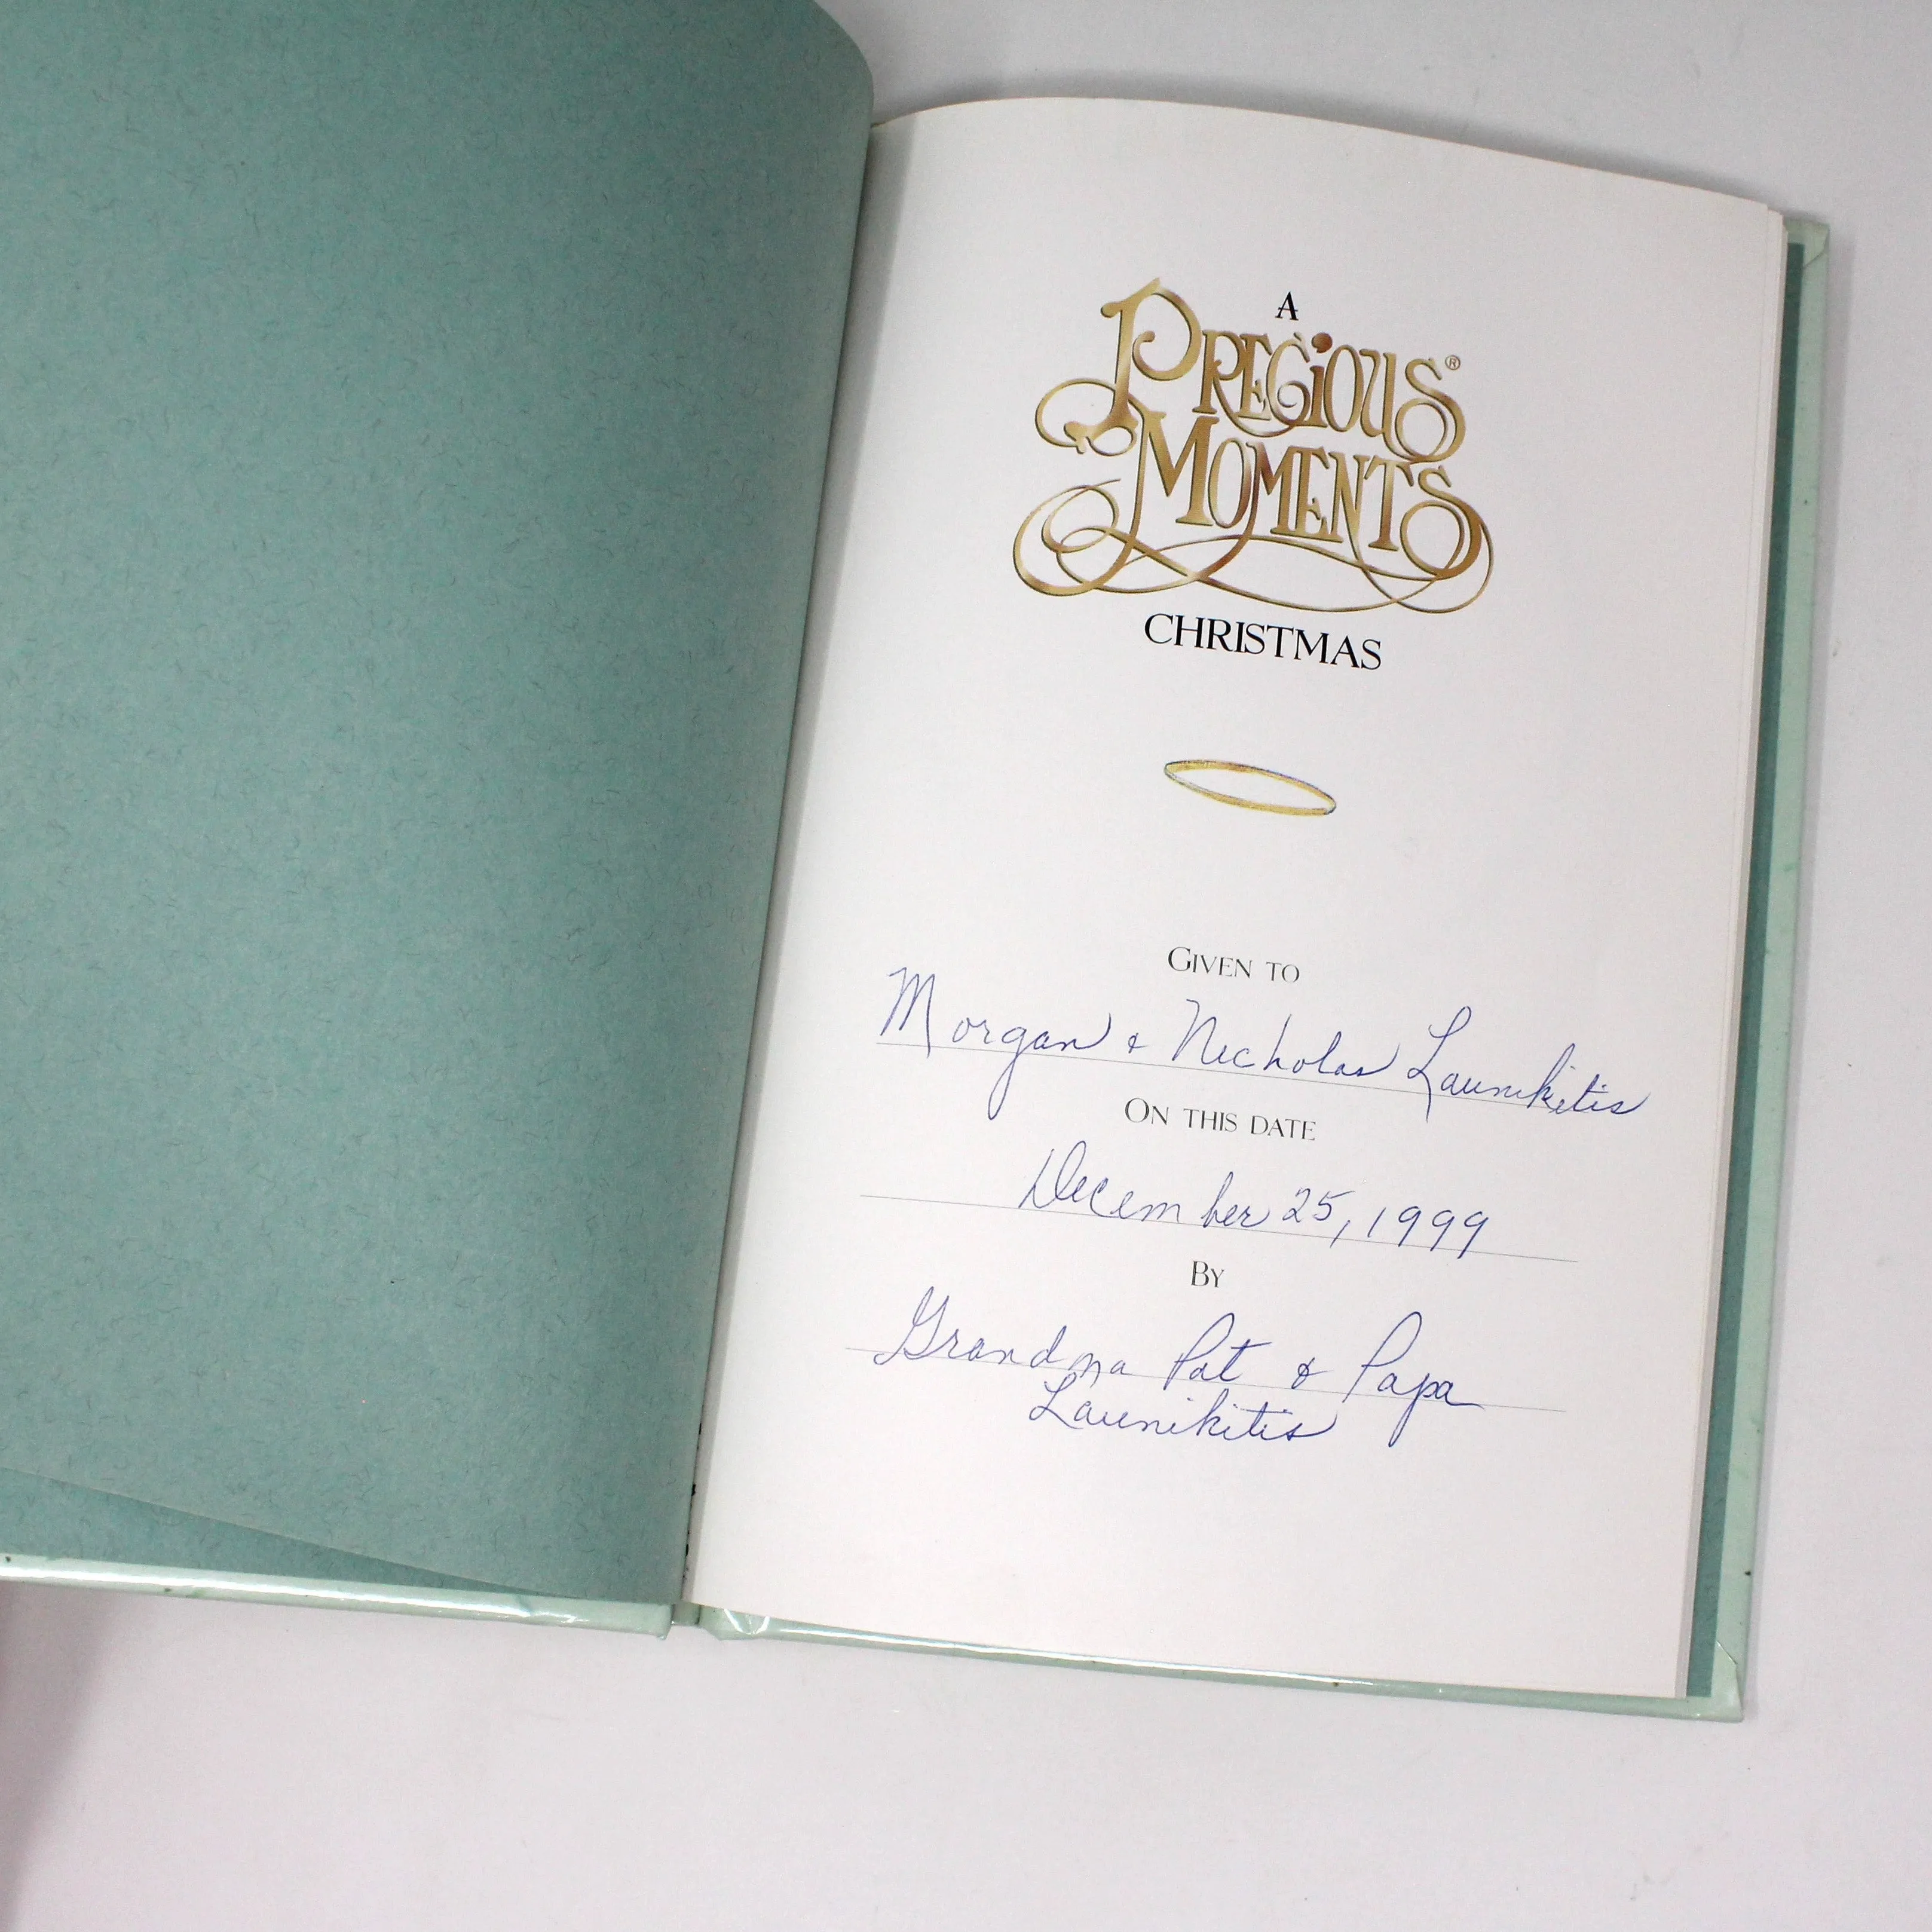 A
PRECIOUS®
MOMENTS
CHRISTMAS
GIVEN TO
Morgan & Nicholas Launikitis
ON THIS DATE
December 25, 1999
BY
Grandma Pat & Papa
Launikitis